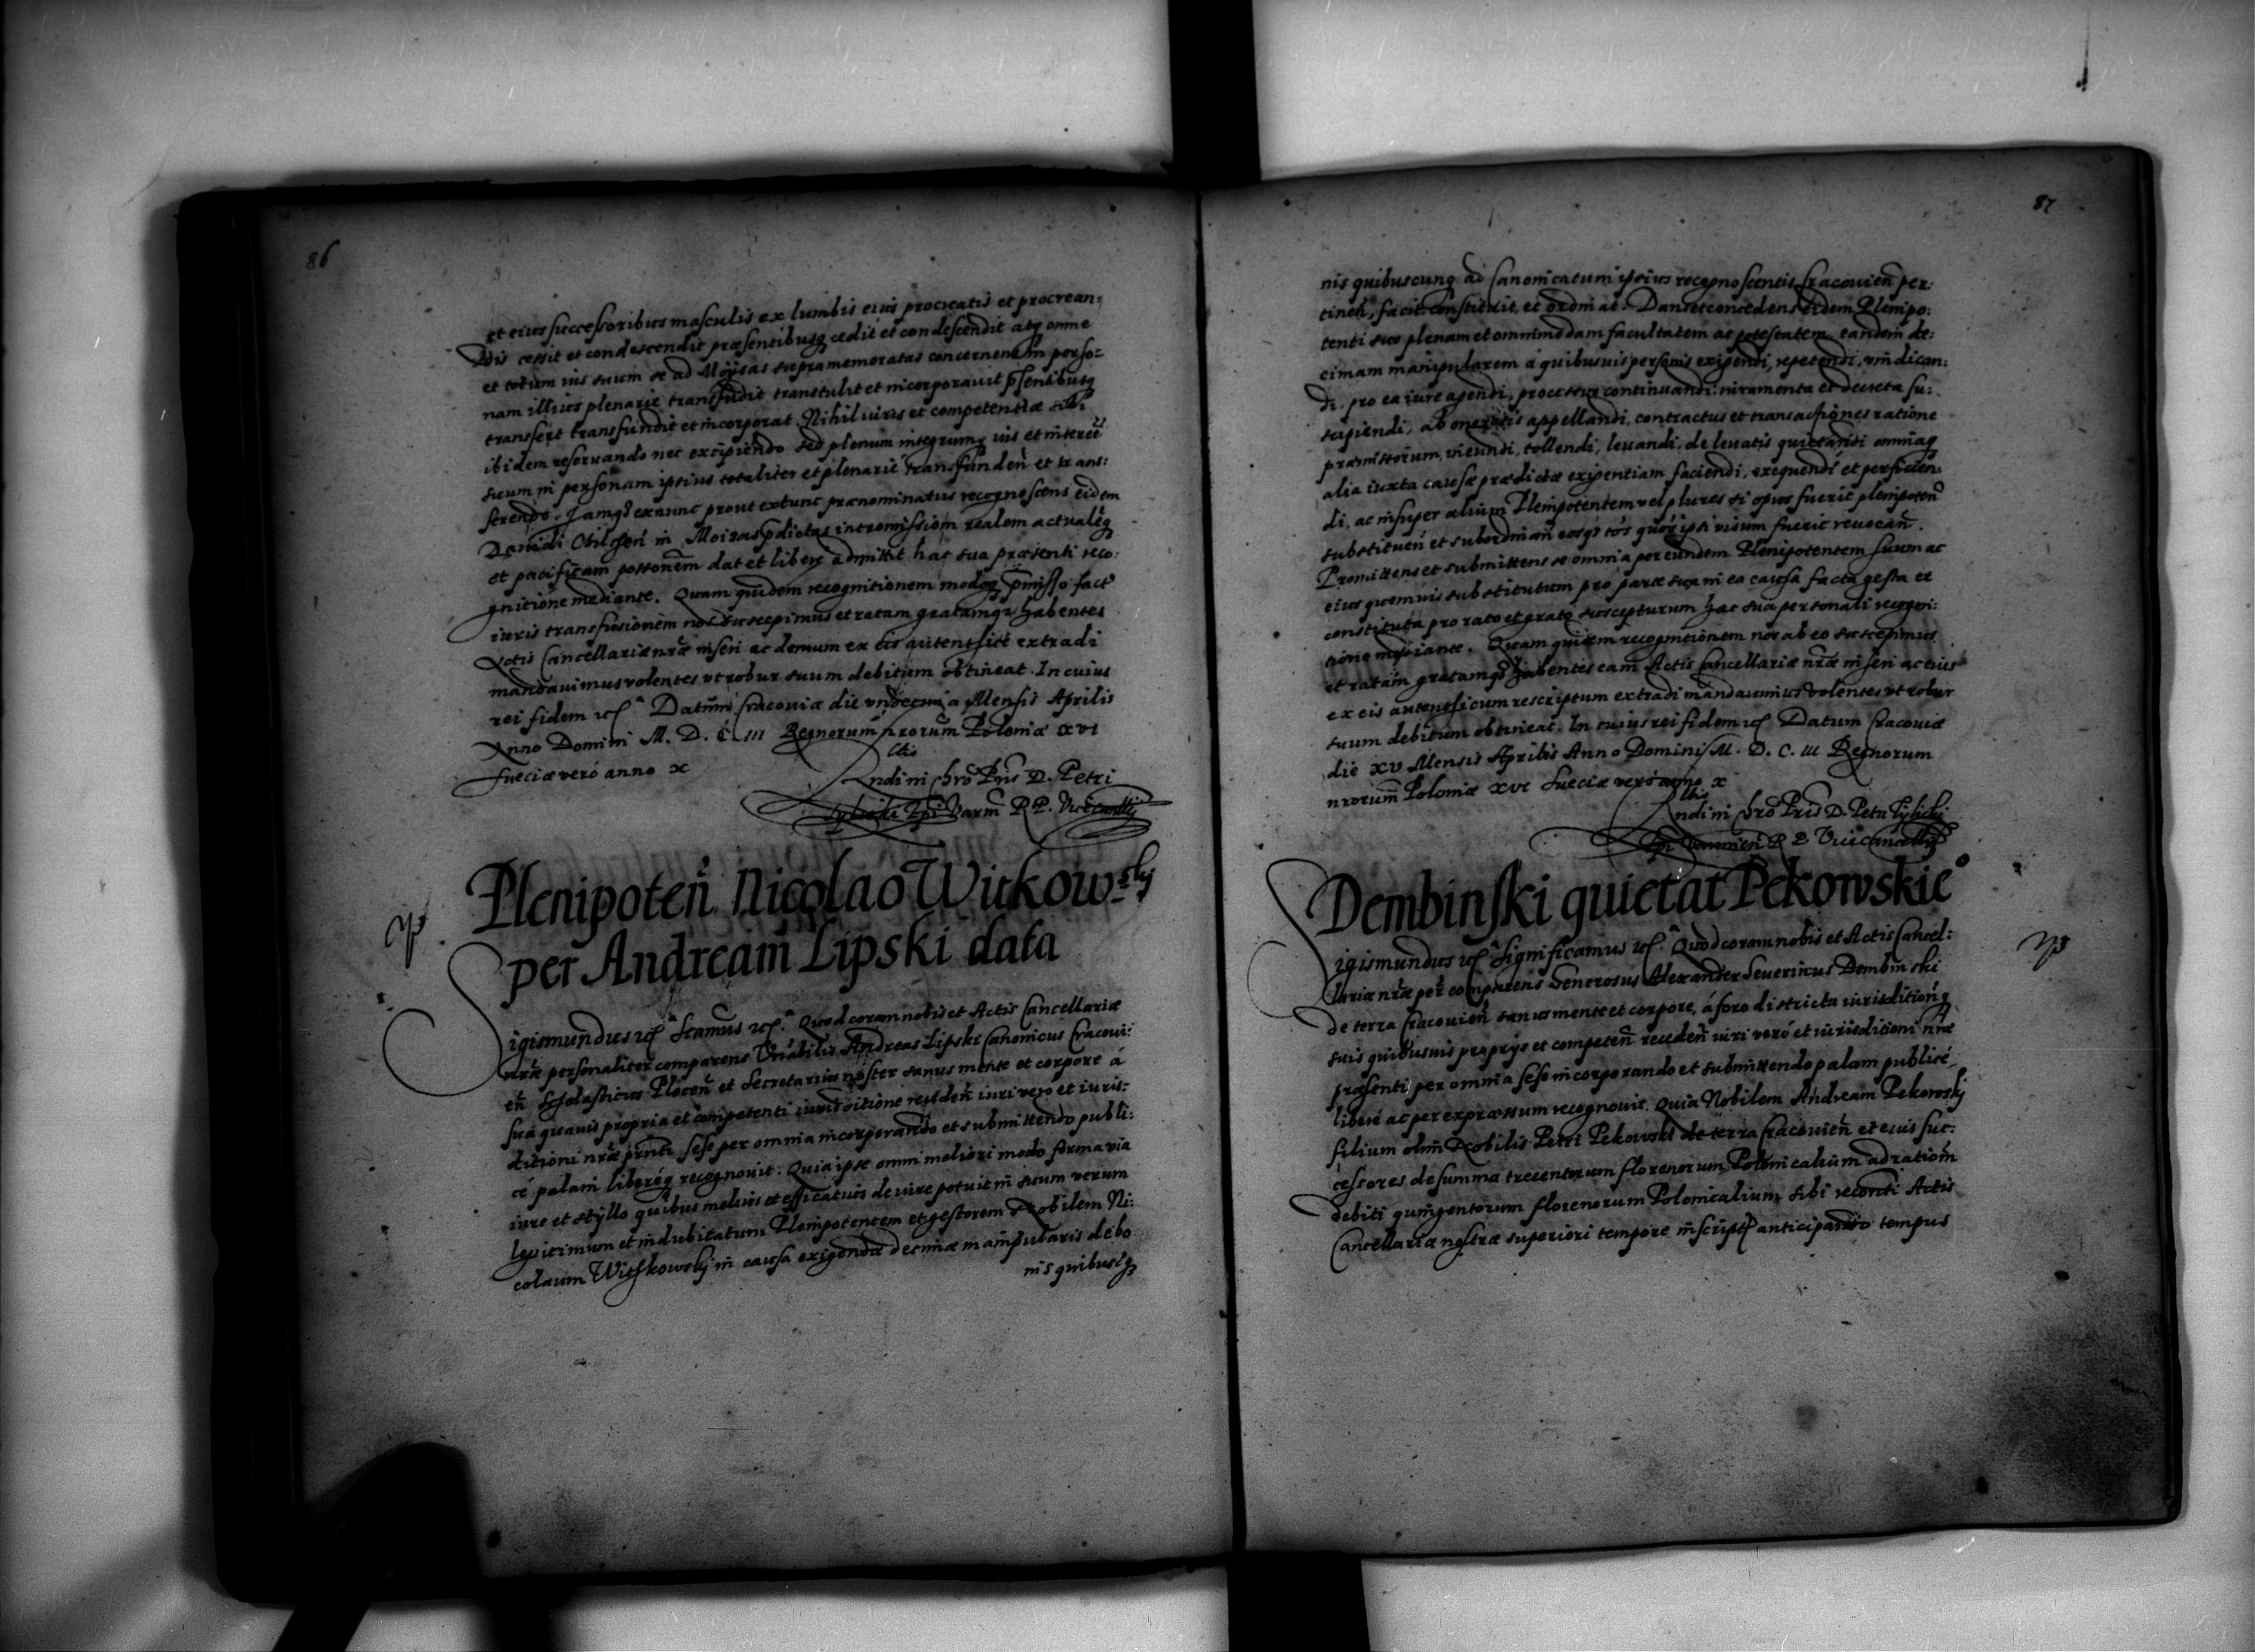 86
et eius successoribus masculis ex lumbis eius procreatis et procrean:
dis cessit et condescendit præsentibusq cedit et condescendit atq omne
et totum ius suum se ad Moÿsas supramemoratas concernens in perso:
nam illius plenarie transfudit transtulit et incorporavit pñsentibusq
transfert transfundit et incorporat. Nihil iuris et competentiæ sibi
ibidem reservando nec excipiendo sed plenum integrumq ius et interée
suum in personam ipsius totaliter et plenarié transfunden̄ et trans:
ferendo. Iamq exnunc prout extunc prænominatus recognoscens eidem
Danidi in Moizas pdictas intromissiom̄ realem actualēq
et pacificam possonēm dat et libere admittit hac sua præsenti reco:
gnitione mediante. Quam quidem recognitionem modoq p̄misso fact
iuris transfusionem nos suscepimus et ratam gratamq habentes
Actis Cancellariæ nrǣ inseri ac demum ex eis autentsicé extradi
mandavimus volentes ut robur suum debitum obtineat. In cuius
rei fidem Datum̄ Cracoviæ die undecima Mensis Aprilis
Anno Domini M. D. C. III Regnorum nrorum̄ Poloniæ XVI
Sueciæ veró anno X
Rndi in Chrō Pris D. Petri
Tylicki Epi Varm̄ R P. Vicecancllij
Plenipoten̄ Nicolao Witkowsky
per Andream Lipski data
Sigismundus Quod coram nobis et Actis Cancellariæ
nrǣ personaliter comparens Vnābilis Andreas Lipski Canonicus Cracovi:
en̄ Scholasticus Plocen̄ et Secretarius noster sanus mente et corpore a
sua quavis propria et competenti iurisditione receden̄ iuri vero et iuris:
ditioni nrǣ pr̄nti sese per omnia incorporando et submittendo publi:
cé palam liberéq recognovit. Quia ipse omni meliori modo forma via
iure et styllo quibus melius et efficatius de iure potuit in suum verum
legitimum et indubitatum Plenipotentem et gestorem Nobilem Ni:
colaum Witskowskÿ in causa exigendæ decimæ manipularis de bo
nis quibuscq
87
nis quibuscunq ad Canonicatum ipsius recognoscentis Cracovien̄ per:
tinen̄, facit constituit, et ordinat. Dans et concedens eidem Plenipo:
tenti suo plenam et omnimodam facultatem ac potestatem, eandem de:
cimam manipularem á quibusvis personis exigendi, repetendi, vindican:
di, pro ea iure agendi, processus continuandi iuramenta et decreta su:
scipiendi, ab onerosis appellandi, contractus et transactiones ratione
præmissorum, ineundi, tollendi, levandi, de levatis quietandi omniaq
alia iuxta causæ prædictæ exigentiam faciendi, exequendi et perficien:
di, ac insuper alium Plenipotentem vel plures si opus fuerit plenipoten
substituen̄ et subordinan̄ eosq tós quós ipsi visum fuerit revocan̄.
Promittens et submittens se omnia per eundem Plenipotentem suum ac
eius quemvis substitutum pro parte sua in ea causa facta gesta et
constituta pro rato et grato suscepturum hac sua personali recogni:
tione mediante. Quam quidem recognitionem nos ab eo suscepimus
et ratam gratamq habentes eam Actis Cancellariæ nrǣ inseri ac eius
ex eis autentsicum rescriptum extradi mandavimus volentes ut robur
suum debitum obtineat. In cuius rei fidem Datum Cracoviæ
die XV Mensis Aprilis Anno Domini M. D. C. III Regnorum
nrorum̄ Poloniæ XVI Sueciæ veró anno X
Rndi in Chrō Pris D. Petri Tylicky
Epi Varmien̄ R P. Vicecancellij
Dembinski quietat Pekowskie°
Sigismundus Significamus Quod coram nobis et Actis Cancel:
lariæ nrǣ per comparens Generosus Alexander Severinus Dembinski
de terra Cracovien̄ sanus mente et corpore, á foro districta iurisditioneq
suis quibusvis proprijs et competen̄ receden̄ iuri veró et iurisditioni nrǣ
præsenti per omnia sese incorporando et submittendo palam publicé,
liberé ac per expræssum recognovit. Quia Nobilem Andream Pekowskÿ
filium olim Nobilis Petri Pekowski de terra Cracovien̄ et eius suc:
cessores de summa trecentorum florenorum Polonicalium ad ratiom̄
debiti quingentorum florenorum Polonicalium sibi Actis
Cancellariæ nostræ superiori tempore inscripti anticipando tempus